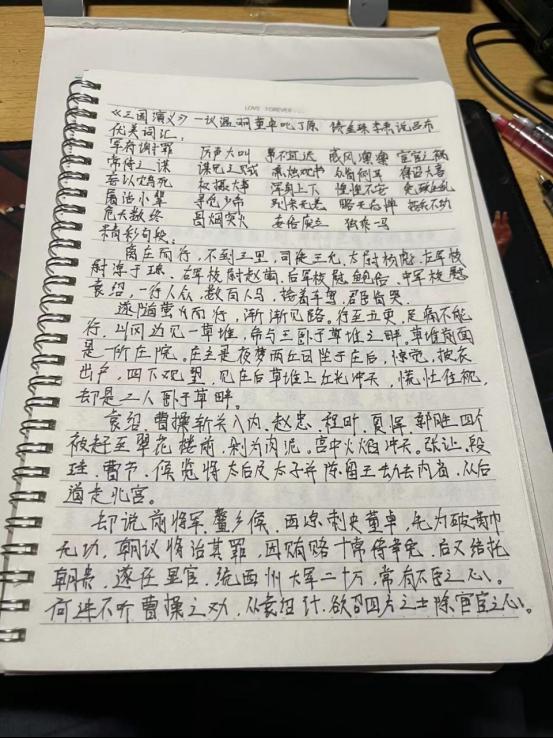 LOVE FOREVER...
《三国演义》一议温明董卓叱丁原 馈金珠李肃说吕布
优美词汇:
军府谢罪 厉声大叫 事不宜迟 威风凛凛 宦官之祸
常侍之谋 谋死之 秉烛观书 人皆侧耳 得证大喜
妄以鸩死 权摄大事 浑身上下 惶惶不安
屠沽小辈 寻觅少帝 别来无恙 略无 功
危天数终 冒烟突火 妄倍废立 独乘一马
精彩句段:
离庄而行,不到三里,司徒王允,太尉杨彪,左军校
尉淳于琼、右军校尉赵萌,后军校尉鲍信,中军校尉
袁绍,一行人众,数百人马,接着车驾,君臣皆哭。
遂随萤火而行,渐渐见路。行至五更,足痛不能
行,山冈边见一草堆,帝与王卧于草堆之畔。草堆前面
是一所庄院。庄主是夜梦两红日坠于庄后,惊觉,披衣
出户,四下观望,见庄后草堆上红光冲天,慌忙往视,
却是二人卧于草畔。
袁绍、曹操斩关入内。赵忠、程旷、夏恽、郭胜四个
被赶至翠花楼前,剁为肉泥。宫中火焰冲天。张让、段
珪、曹节、候览将太后及太子并陈留王劫去内省,从后
道走北宫。
却说前将军、鳌乡候、西凉刺史董卓,先为破黄巾
无功,朝议将治其罪,因贿赂十常侍幸免,后又结托
朝贵,遂任显官,统西州大军二十万,常有不臣之心。
何进不听曹操之劝,从袁绍计,欲召四方之士除宦官之心。